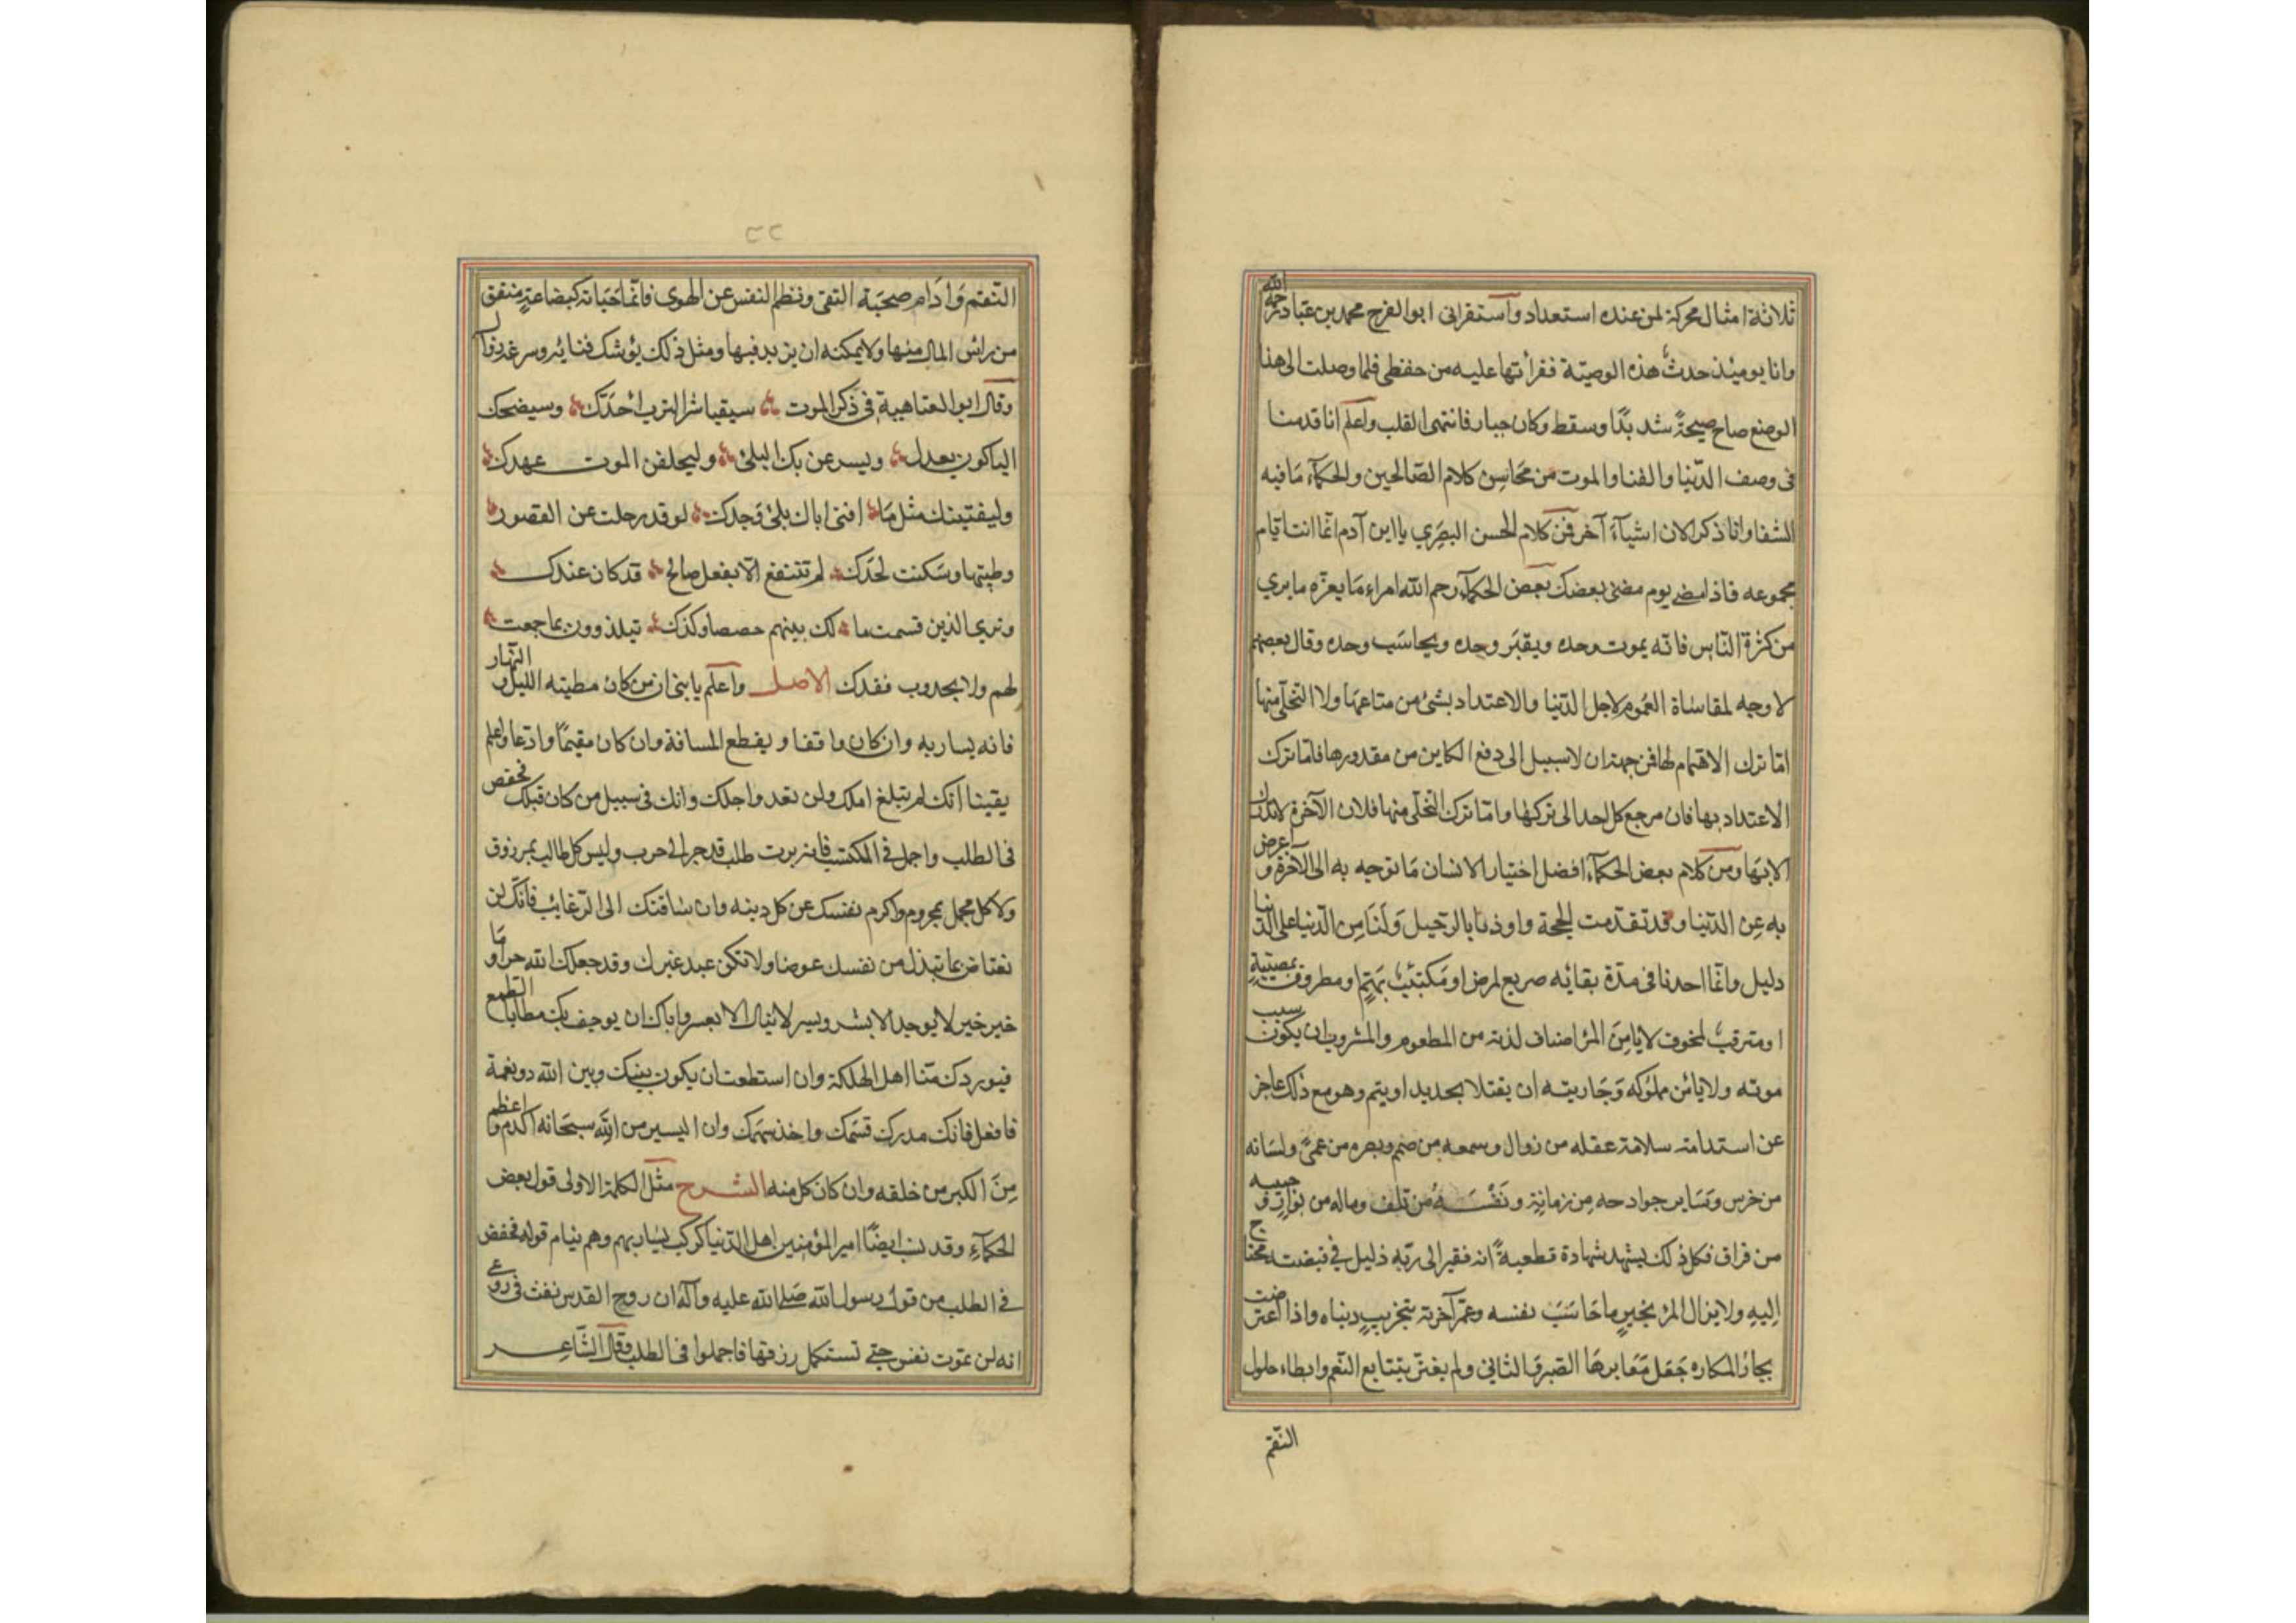 ثلاثة امثال محركة لمن عنده استعداد واستقرانى ابو الفرج محمد بن عباد رحمه الله
وانا يومئذ حدث هذه الوصيّة فقرأتها عليه من حفظى فلما وصلت الى هذا
الوضع صاح صيحةً شديدًا وسقط وكان جبار فانتهى القلب واعلم انا قدمنا
فى وصف الدّنيا والفنا والموت من محَاسِن كلام الصّالحين والحكمآء مَا فيه
الشفا وانا ذكر الان اشيآءَ آخر فمن كلام الحسن البصَري يا ابن آدم انما انت ايام
مجموعه فاذا مضى يوم مضى بعضك بعض الحكمآء رحم الله امراء مَا يعزّه ما يرى
من كثرة النّاس فانّه يموت وحده ويقبَر وحده ويحاسَب وحده وقال بعضهم
لا وجه لمقاساة الغموم لاجل الدّنيا والاعتداد بشئ من متاعهَا ولا التخلّى منها
امّا ترك الاهتمام لها فمن جهة ان لا سبيل الى دفع الكاين من مقدورها فامّا ترك
الاعتداد بها فان مرجع كل احد الى تركها وامّا ترك التخلّى منها فلان الآخرة لا تدرك
الا بهَا ومن كلام بعض الحكمآء افضل اختيار الانسان مَا توجه به الى الآخرة واعرض
به عن الدّنيا وقد تقدّمت الحجة واوذنا بالرّحيل وَلَنَا من الدّنيا على الدّنيا
دليل وانّما احدنا فى مدّة بقائه صريع لمرض او مكتئب بهَمٍّ ومطروف بمصيبةٍ
او مترقب لمخوف لا يامِن المرٔ اصناف لذته من المطعوم والمشروب ان يكون سبب
موته ولا يأمن مملوكه وَجَاريته ان يقتلا بحديد او يتم وهو مع ذلك عاجز
عن استدامة سلامة عقله من زوال وسمعه من صمم وبصره من عمىً ولسَانه
من خرس وسَاير جوارحه من زمانةٍ ونَفْسَهُ من تلف وماله من بوار وحبيبه
من فراق فكل ذلك يشهد شهادة قطعيةً انه فقير الى ربّه ذليل فى قبضته محتاج
اِليهِ ولا يزال المرٔ بخيرٍ ما حَاسَبَ نفسه وعمّر آخرته بتخريبِ دنياه واذا اعترضت
بحارُ المكاره جَعَل مَعَابرهَا الصّبر والتاني ولم يغترّ بتتابع النّعم وابطاء حلول
النّقم
٢٢
النّقم وَادَام صحبَة التقى وفطم النفس عن الهوى فانّما حَيَاته كبضاعةٍ ينفق
من رأس المال منها ولا يمكنه ان يزيد فيها ومثل ذلك يوشك فنايه وسرعة زوال
وقال ابو العتاهية فى ذكر الموت سيقيا شر الترب اخَدّك وسيضحك
الباكون بعدك وليسر عن بك البلى وليخلفن الموت عهدك
وليفنينك مثل مَا افنى اباك بلى وَجدك لو قد رحلت عن القصور
وطيبها وسَكنت لحَدَك لم تنتفع الّا بفعل صالح قد كان عندك
وترى الذين قسمت ما لك بينهم حصصا وكدّك يتلذذون بما جمعت
لهم ولا يجدون فقدك الاصل واعلم يا بنى ان من كان مطيته الليل والنّهار
فانه يسار به وان كان واقفا ويقطع المسافة وان كان مقيمًا وادعا واعلم
يقينا انّك لم تبلغ املك ولن تعدو اجلك وانك فى سبيل من كان قبلك فخفض
فى الطلب واجمل فى المكتسب فانه ربّ طلب قد جر الى حرب وليس كل طالب بمرزوق
ولا كل مجمل بمحروم واكرم نفسك عن كل دنيه وان ساقتك الى الرّغائب فانّك لن
تعتاض بما تبذل من نفسك عوضا ولا تكن عبد غيرك وقد جعلك الله حرا وما
خير خير لا يوجد الا بشر ويسير لا ينال الا بعسر واياك ان يوجف بك مطايا الطمع
فيوردك مناهل الهلكة وان استطعت ان يكون بينك وبين الله ذو نعمة
فافعل فانك مدرك قسمَك واخذ سهمَك وان اليسير من الله سبحَانه اكرم واعظم
مِنَ الكبير من خلقه وان كان كل منه الشرح مثل الكلمة الاولى قول بعض
الحكمآء وقد نسب ايضًا امير المؤمنين اهل الدّنيا كركب يسَار بهم وهم نيام قوله فخفض
فى الطلب من قول رسول الله صَلى الله عليه وآله ان روح القدس نفث فى روعى
انه لن تموت نفس حتى تستكمل رزقها فاجملوا فى الطلب وقال الشّاعر